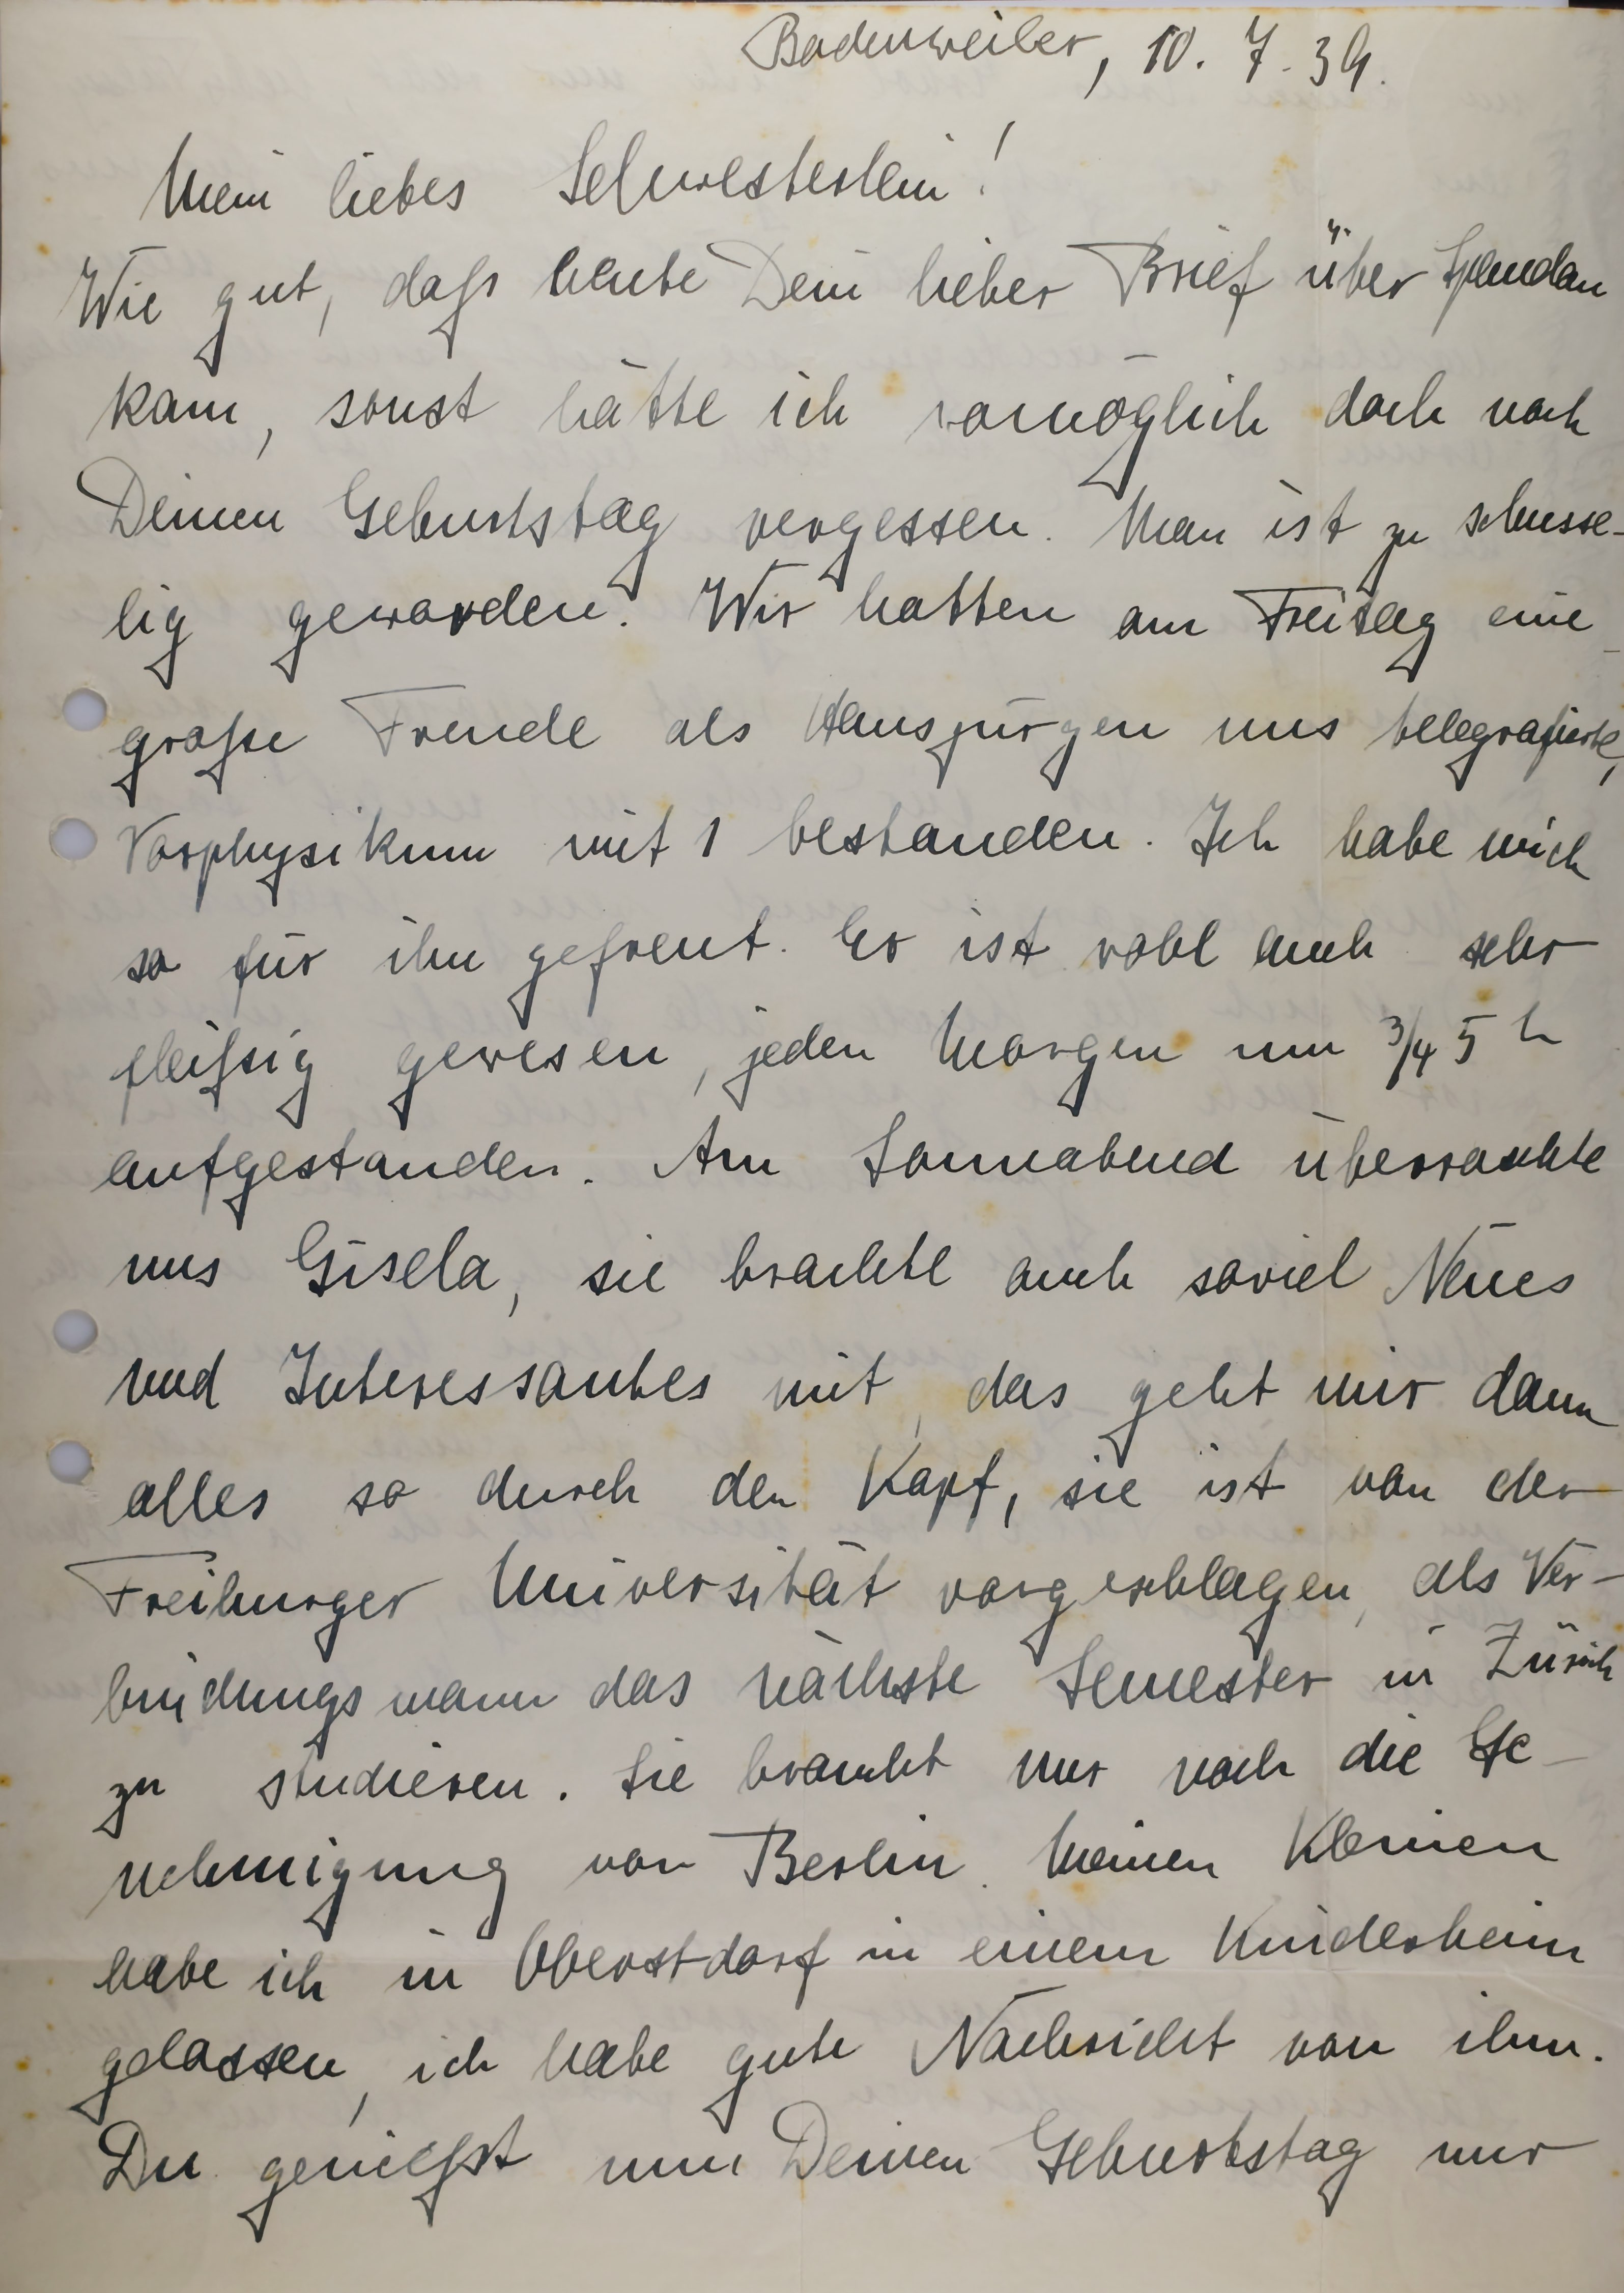 Badenweiler, 10. 7. 39.
Mein liebes Schwesterlein!
Wie gut, daß heute Dein lieber Brief über Spandau
kam, sonst hätte ich womöglich doch noch
Deinen Geburtstag vergessen. Man ist zu schusse-
lig geworden. Wir hatten am Freitag eine
große Freude als Hansjürgen uns telegrafierte,
Vorphysikum mit 1 bestanden. Ich habe mich
so für ihn gefreut. Er ist wohl auch sehr
fleißig gewesen, jeden Morgen um 3/4 5 h
aufgestanden. Am Sonnabend überraschte
uns Gisela, sie brachte auch soviel Neues
und Interessantes mit, das geht mir dann
alles so durch den Kopf, sie ist von der
Freiburger Universität vorgeschlagen, als Ver-
bindungsmann das nächste Semester in Zürich
zu studieren. Sie braucht nur noch die Ge-
nehmigung von Berlin. Meinen Kleinen
habe ich in Oberstdorf in einem Kinderheim
gelassen, ich habe gute Nachricht von ihm.
Du genießt nun Deinen Geburtstag nur